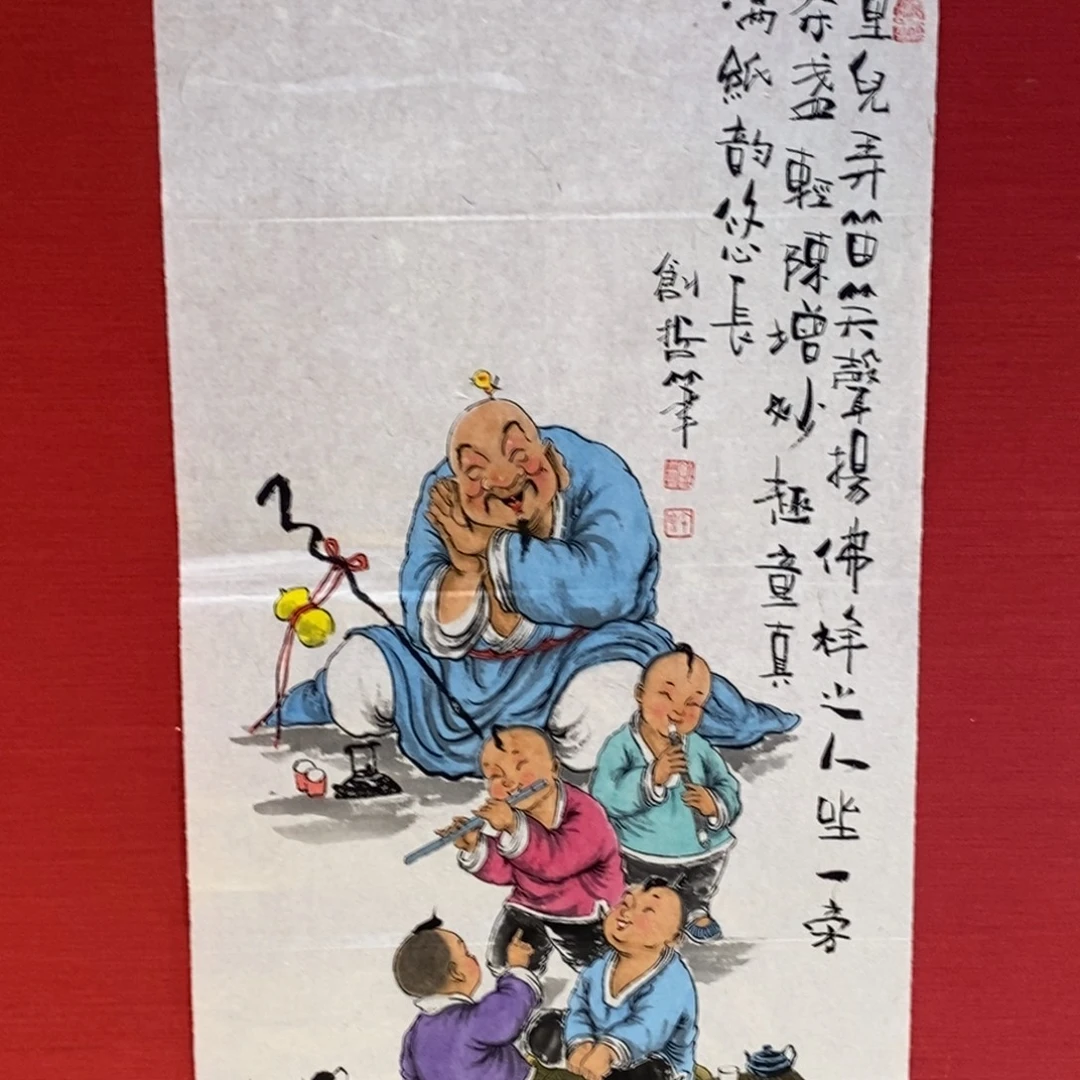 童兒弄笛笑聲揚佛祥之人坐一旁
茶盞輕陳增妙趣童真
滿紙韵悠長
創哲筆